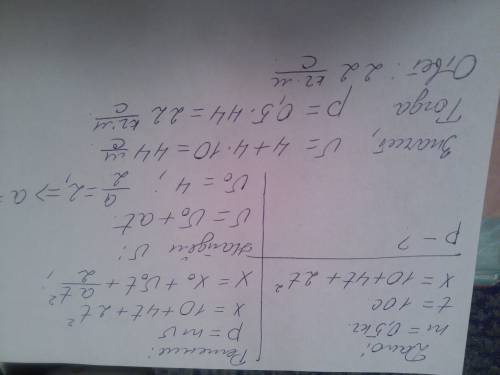 Дано:
m = 0,5 кг.
t = 10 с
x = 10 + 4t + 2t²
p – ?
Решение:
p = mv
x = 10 + 4t + 2t²
x = x₀ + v₀t + at²/2;
Найдём v:
v = v₀ + at.
v₀ = 4; a/2 = 2, => a =
Значит,
v = 4 + 4·10 = 44 м/с
Тогда p = 0,5·44 = 22 кг·м/с
Ответ: 22 кг·м/с